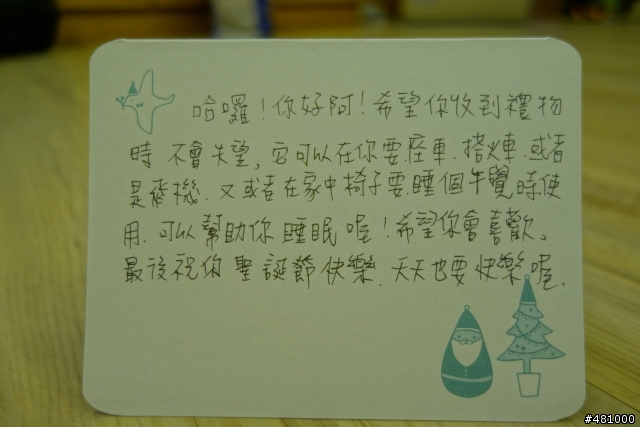 哈囉!你好阿!希望你收到禮物
時不會失望,它可以在你要座車.搭火車.或者
是飛機.又或者在家中椅子要睡個午覺時使
用.可以幫助你睡眠喔!希望你會喜歡。
最後祝你聖誕節快樂.天天也要快樂喔.
#481000